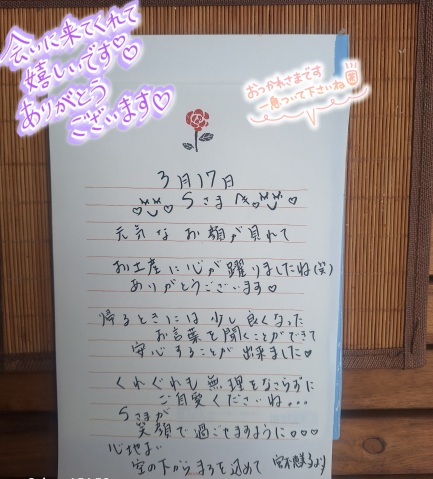 会いに来てくれて
嬉しいです♡
ありがとう
ございます♡
おつかれさまです
一息ついて下さいね
3月17日
Sさまへ
元気なお顔が見れて
お土産に心が躍りましたね(笑)
ありがとうございます♡
帰るときには少し良くなった
お言葉を聞くことができて
安心することが出来ました♡
くれぐれも無理をなさらずに
ご自愛くださいね...
Sさまが
笑顔で過ごせますように♡♡♡
心地よい
空の下から まろを込めて
より